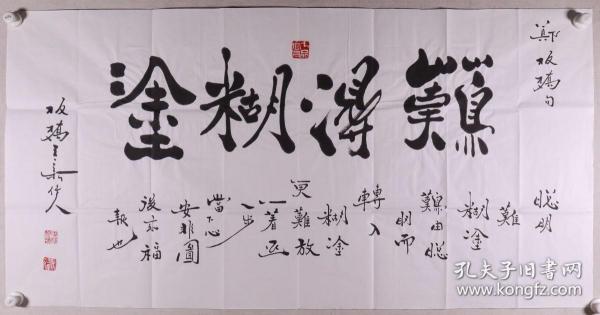 鄭板橋句
難得糊塗
聰明
難
糊塗
難由聰
明而
轉入
糊塗
更難放
一著退
一步
當下心
安非圖
後來福
報也
孔夫子旧书网
www.kongfz.com